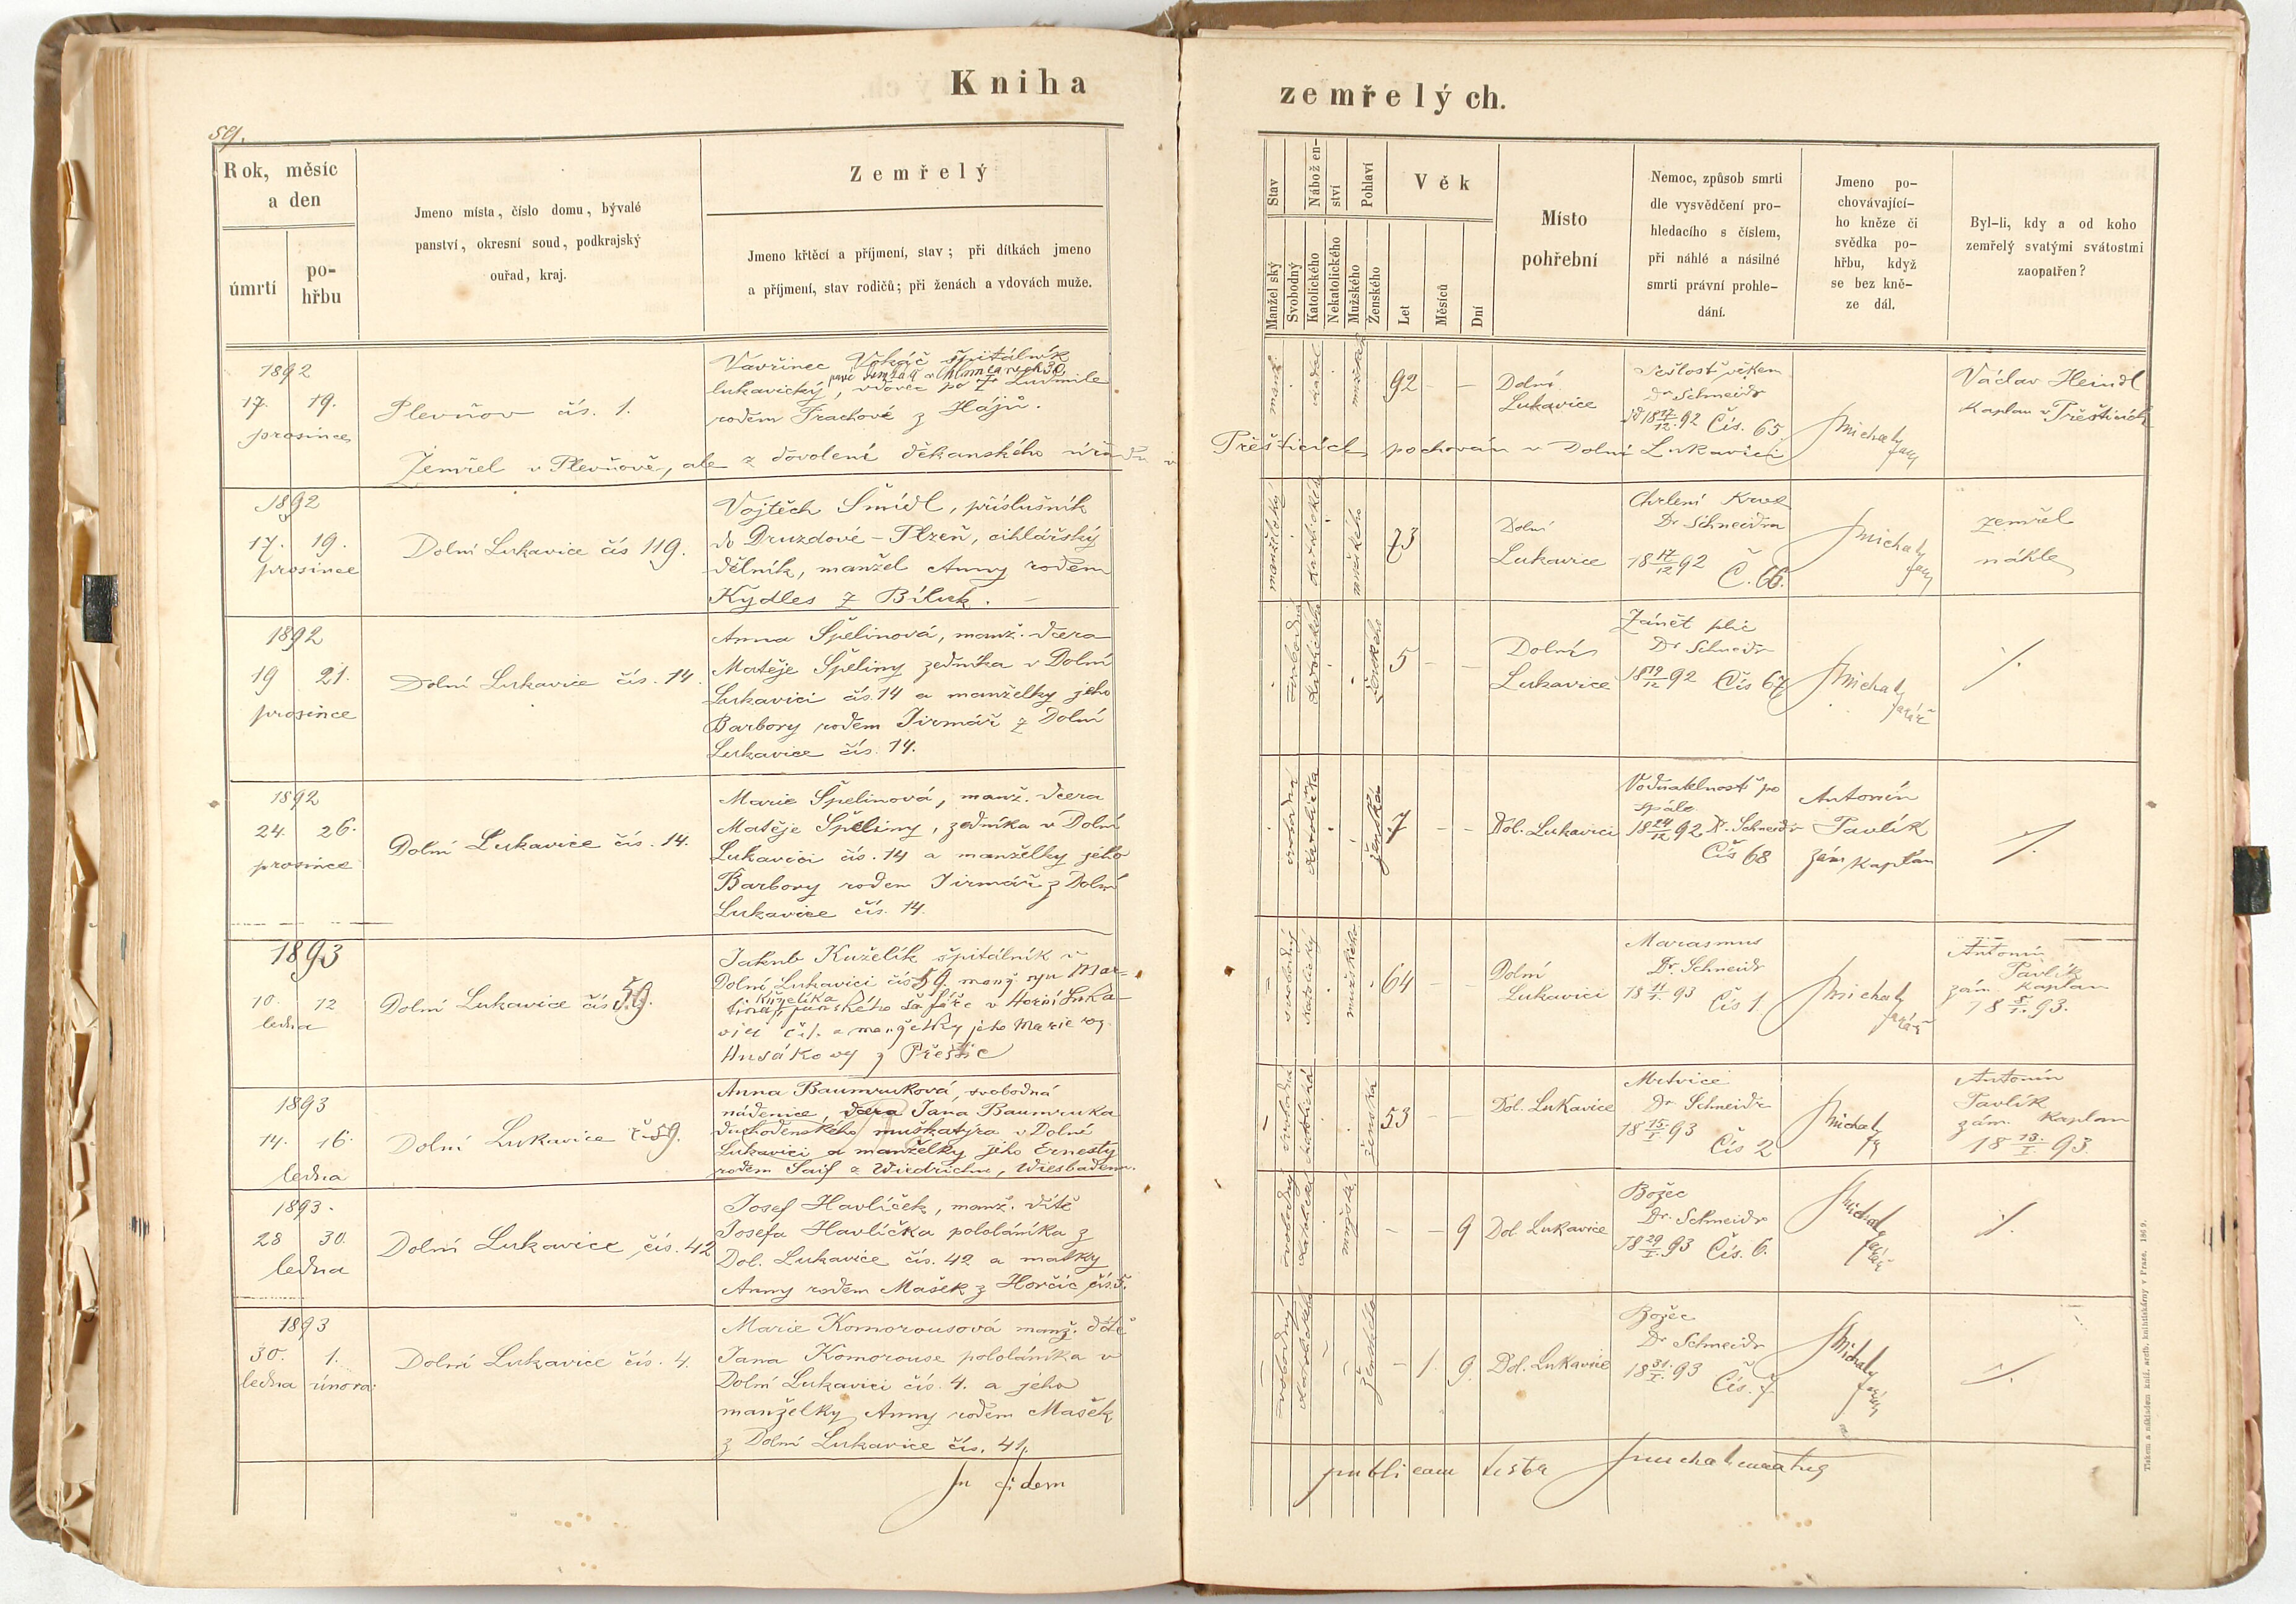 Kniha
zemřelých.
59.
Rok, měsíc
a den
úmrtí
po-
hřbu
Jmeno místa, číslo domu, bývalé
panství, okresní soud, podkrajský
ouřad, kraj.
Zemřelý
Jmeno křtěcí a příjmení, stav; při dítkách jmeno
a příjmení, stav rodičů; při ženách a vdovách muže.
Stav
Nábožen-
ství
Pohlaví
Věk
Manželský
Svobodný
Katolického
Nekatolického
Mužského
Ženského
Let
Měsíců
Dní
Místo
pohřební
Nemoc, způsob smrti
dle vysvědčení pro-
hledacího s číslem,
při náhlé a násilné
smrti právní prohle-
dání.
Jmeno po-
chovávající-
ho kněze či
svědka po-
hřbu, když
se bez kně-
ze dál.
Byl-li, kdy a od koho
zemřelý svatými svátostmi
zaopatřen?
1892
17. 19.
prosince
Plevňov čís. 1.
Vavřinec Vokáč špitálník
lukavický, vdovec po Ludmile
rodem Prachové z Hájů.
92 - -
Dolní
Lukavice
Sešlost věkem
Dr Schneidr
18 17/12 92 Čís. 65
Michal
far
Václav Heindl
Kaplan v Přešticích
Zemřel v Plevňově, ale z dovolení děkanského úřadu v Přešticích pochován v Dolní Lukavici
1892
17. 19.
prosince
Dolní Lukavice čís 119.
Vojtěch Šmídl, příslušník
do Druzdové - Plzeň, cihlářský
dělník, manžel Anny rodem
Kydles z Bíluk. -
manželský
katolické
mužského
73
Dolní
Lukavice
Chrlení Krve
Dr Schneidra
18 17/12 92 Č. 66.
Michal
far
zemřel
náhle
1892
19 21.
prosince
Dolní Lukavice čís. 14.
Anna Špelinová, manž. dcera
Matěje Špeliny zedníka v Dolní
Lukavici čís. 14 a manželky jeho
Barbory rodem Jirmář z Dolní
Lukavice čís. 14.
svobodná
katolického
ženského
5 - -
Dolní
Lukavice
Zánět plic
Dr Schneidr
18 19/12 92 Čís 67
Michal
farář
1892
24. 26.
prosince
Dolní Lukavice čís. 14.
Marie Špelinová, manž. dcera
Matěje Špeliny, zedníka v Dolní
Lukavici čís. 14 a manželky jeho
Barbory rodem Jirmář z Dolní
Lukavice čís. 14.
svobodná
katolička
ženská
7 - -
Dol. Lukavici
Vodnatelnost po
spále
18 24/12 92 Dr. Schneidr
Čís 68
Antonín
Pavlík
zám Kaplan
1893
10. 12
ledna
Dolní Lukavice čís 59.
Jakub Kuželík špitálník v
Dolní Lukavici čís 59. manž. syn Mar-
tina Kuželíka panského šafáře v Horní Luka-
vici č. 1. a manželky jeho Marie roz.
Husákovy z Přeštic
svobodný
katolický
mužského
64 - -
Dolní
Lukavici
Marasmus
Dr. Schneidr
18 11/1. 93 Čís 1
Michal
farář
Antonín
Pavlík
zám. Kaplan
18 5/1. 93.
1893
14. 16.
ledna
Dolní Lukavice č. 59.
Anna Baumruková, svobodná
nádenice, dcera Jana Baumruka
duchodenského muškatýra v Dolní
Lukavici a manželky jeho Ernesty
rodem Saif z Wiedrichu, Wiesbadenu.
svobodná
katolická
ženská
53 - -
Dol. Lukavice
Mrtvice
Dr Schneidr
18 15/I 93
Čís 2
Michal
fa
Antonín
Pavlík
zám. Kaplan
18 13./I. 93.
1893.
28 30.
ledna
Dolní Lukavice, čís. 42
Josef Havlíček, manž. dítě
Josefa Havlíčka pololáníka z
Dol. Lukavice čís. 42 a matky
Anny rodem Mašek z Horčic čís. 5.
svobodný
mužské
- - 9
Dol Lukavice
Božec
Dr. Schneidr
18 29/I. 93 Čís. 6.
Michal
farář
1893
30. 1.
ledna února.
Dolní Lukavice čís. 4.
Marie Komorousová manž. dítě
Jana Komorouse pololáníka v
Dolní Lukavici čís. 4. a jeho
manželky Anny rodem Mašek
z Dolní Lukavice čís. 41.
svobodný
- 1 9.
Dol. Lukavice
Božec
Dr Schneidr
18 31./I. 93 Čís. 7.
Michal
farář
In fidem
publicam testor
Tiskem a nákladem kníž. arcib. knihtiskárny v Praze. 1869.